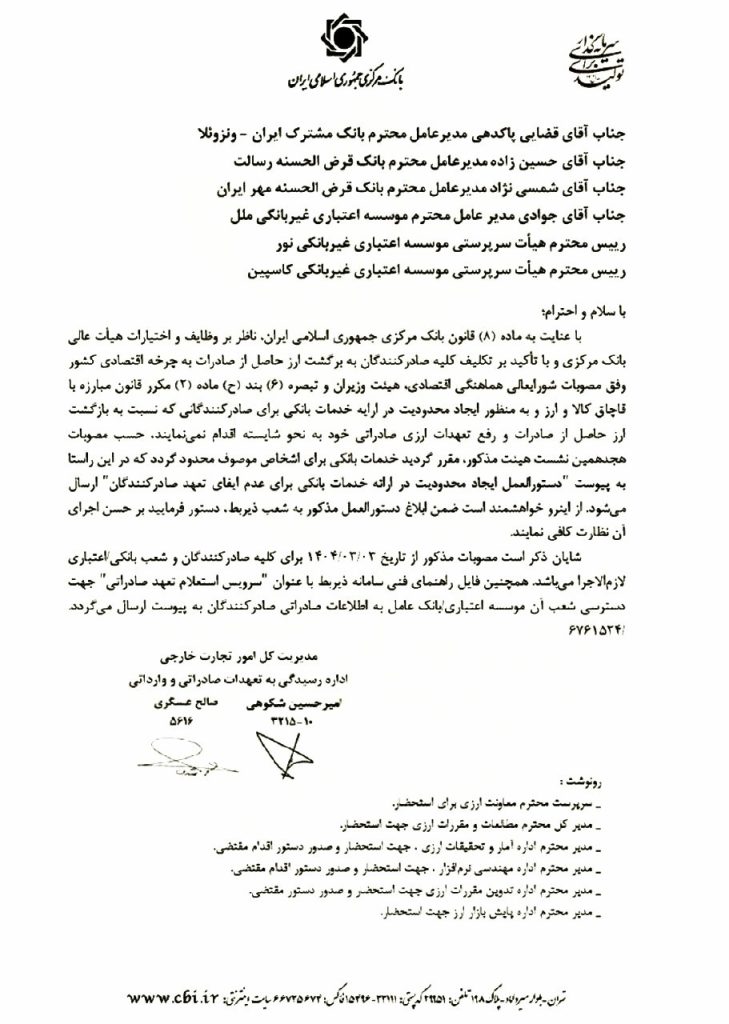 بانک مرکزی جمهوری اسلامی ایران
سرمایه‌گذاری برای تولید
جناب آقای قضایی پاکدهی مدیرعامل محترم بانک مشترک ایران - ونزوئلا
جناب آقای حسین زاده مدیرعامل محترم بانک قرض الحسنه رسالت
جناب آقای شمسی نژاد مدیرعامل محترم بانک قرض الحسنه مهر ایران
جناب آقای جوادی مدیر عامل محترم موسسه اعتباری غیربانکی ملل
رییس محترم هیأت سرپرستی موسسه اعتباری غیربانکی نور
رییس محترم هیأت سرپرستی موسسه اعتباری غیربانکی کاسپین
با سلام و احترام؛
با عنایت به ماده (۸) قانون بانک مرکزی جمهوری اسلامی ایران، ناظر بر وظایف و اختیارات هیأت عالی
بانک مرکزی و با تأکید بر تکلیف کلیه صادرکنندگان به برگشت ارز حاصل از صادرات به چرخه اقتصادی کشور
وفق مصوبات شورایعالی هماهنگی اقتصادی، هیئت وزیران و تبصره (۶) بند (ح) ماده (۲) مکرر قانون مبارزه با
قاچاق کالا و ارز و به منظور ایجاد محدودیت در ارایه خدمات بانکی برای صادرکنندگانی که نسبت به بازگشت
ارز حاصل از صادرات و رفع تعهدات ارزی صادراتی خود به نحو شایسته اقدام نمی‌نمایند، حسب مصوبات
هجدهمین نشست هیئت مذکور، مقرر گردید خدمات بانکی برای اشخاص موصوف محدود گردد که در این راستا
به پیوست "دستورالعمل ایجاد محدودیت در ارائه خدمات بانکی برای عدم ایفای تعهد صادرکنندگان" ارسال
می‌شود. از اینرو خواهشمند است ضمن ابلاغ دستورالعمل مذکور به شعب ذیربط، دستور فرمایید بر حسن اجرای
آن نظارت کافی نمایند.
شایان ذکر است مصوبات مذکور از تاریخ ۱۴۰۴/۰۳/۰۳ برای کلیه صادرکنندگان و شعب بانکی/اعتباری
لازم‌الاجرا می‌باشد. همچنین فایل راهنمای فنی سامانه ذیربط با عنوان "سرویس استعلام تعهد صادراتی" جهت
دسترسی شعب آن موسسه اعتباری/بانک عامل به اطلاعات صادراتی صادرکنندگان به پیوست ارسال می‌گردد.
/۶۷۶۱۵۲۴
مدیریت کل امور تجارت خارجی
اداره رسیدگی به تعهدات صادراتی و وارداتی
امیرحسین شکوهی صالح عسگری
۳۲۱۵-۱۰ ۵۶۱۶
رونوشت :
_ سرپرست محترم معاونت ارزی برای استحضار.
_ مدیر کل محترم مطالعات و مقررات ارزی جهت استحضار.
_ مدیر محترم اداره آمار و تحقیقات ارزی ، جهت استحضار و صدور دستور اقدام مقتضی.
_ مدیر محترم اداره مهندسی نرم‌افزار ، جهت استحضار و صدور دستور اقدام مقتضی.
_ مدیر محترم اداره تدوین مقررات ارزی جهت استحضر و صدور دستور مقتضی.
_ مدیر محترم اداره پایش بازار ارز جهت استحضار.
تهران-بلوار میرداماد-پلاک ۱۹۸ تلفن: ۲۹۹۵۱ کدپستی: ۳۳۱۱۱-۱۵۴۹۶ فاکس: ۶۶۷۳۵۶۷۴ سایت اینترنتی: www.cbi.ir